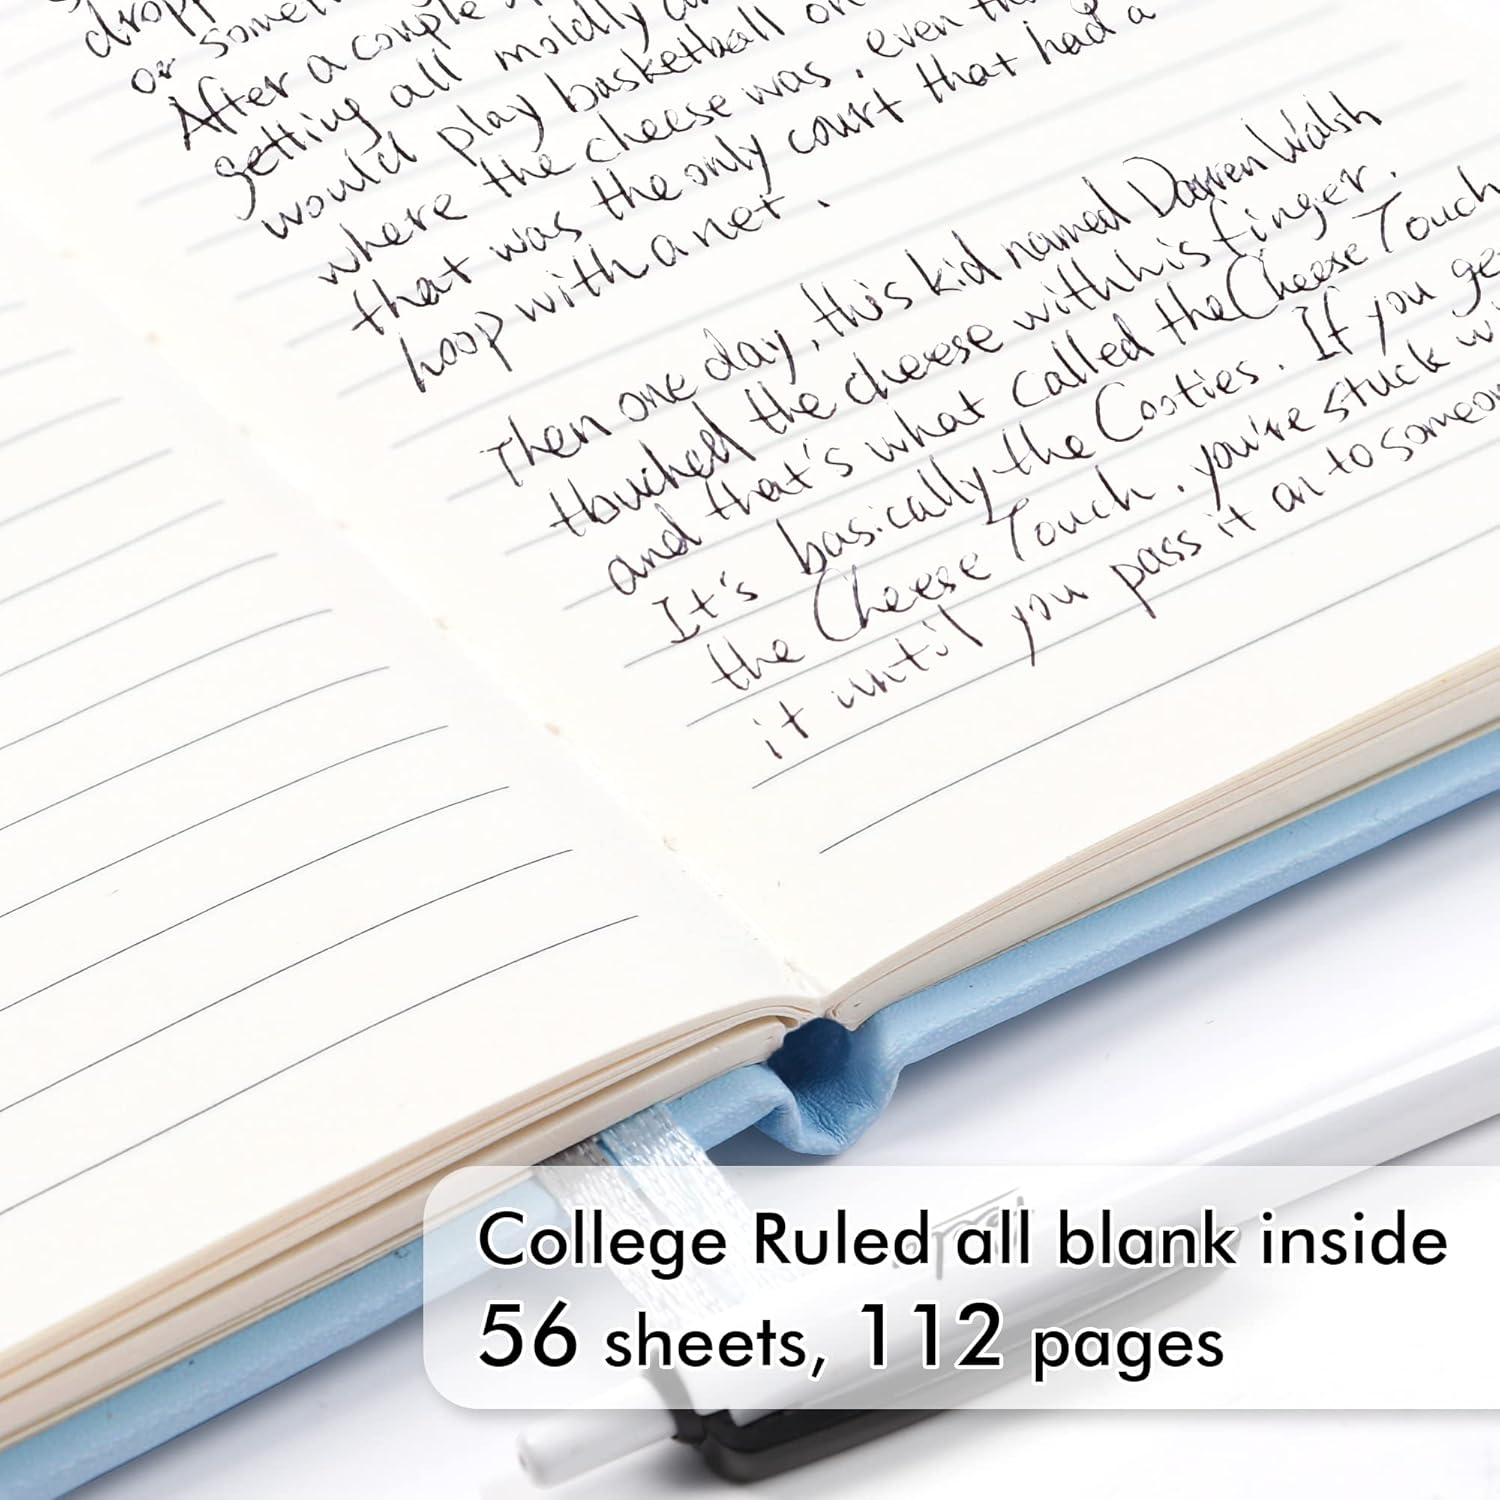 dropp
or someth
After a couple
getting all moldly an
would play basketball on
where the cheese was, even th
that was the only court that had a
hoop with a net.
Then one day, this kid named Darren Walsh
tbuched the cheese with his finger.
and that's what called the Cheese Touch
It's basically the Cooties. If you ge
the Cheese Touch, you're stuck wi
it until you pass it on to someon
College Ruled all blank inside
56 sheets, 112 pages